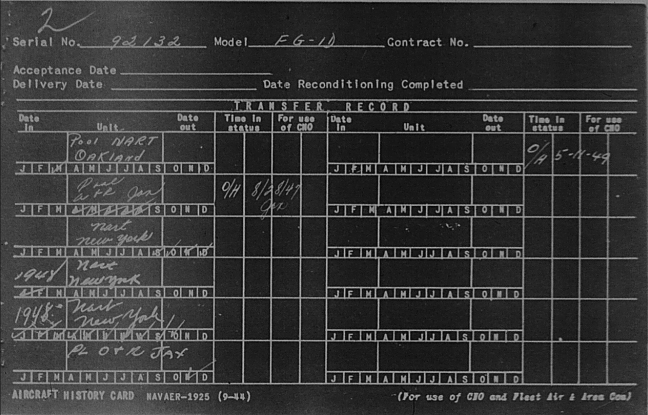 2
Serial No. 92132 Model FG-1D Contract No.
Acceptance Date
Delivery Date Date Reconditioning Completed
TRANSFER RECORD
Date in Unit Date out Time in status For use of CNO Date in Unit Date out Time in status For use of CNO
Pool NART
OAKLAND O/H 5-11-49
J F M A M J J A S O N D J F M A M J J A S O N D
Pool
Jax O/H 8/28/47
Jax
J F M A M J J A S O N D J F M A M J J A S O N D
Nart
New York
J F M A M J J A S O N D J F M A M J J A S O N D
1948 Nart
New York
J F M A M J J A S O N D J F M A M J J A S O N D
1948 Nart
New York
J F M A M J J A S O N D J F M A M J J A S O N D
PL O&R JAX
J F M A M J J A S O N D J F M A M J J A S O N D
AIRCRAFT HISTORY CARD NAVAER-1925 (9-44) (For use of CNO and Fleet Air & Area Com)